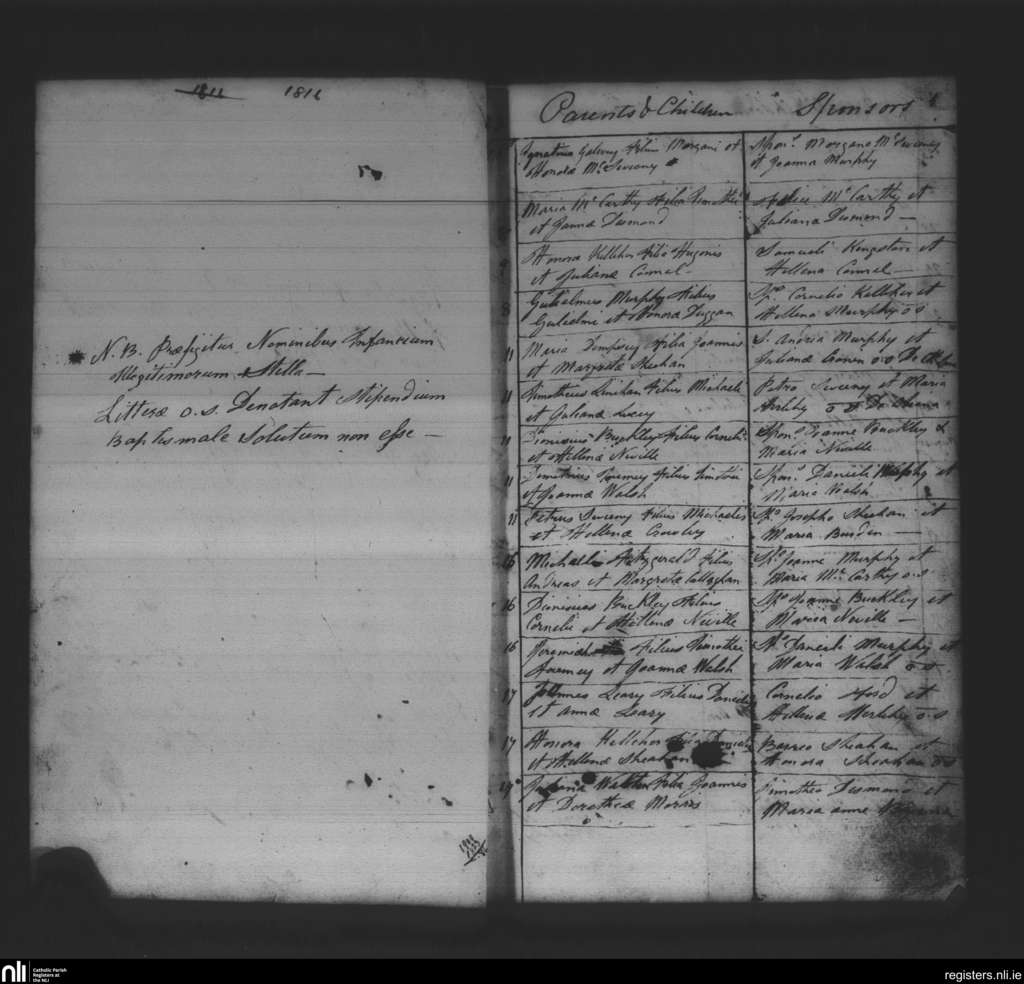 1816 1816
N.B. Præfigitur Nominibus Infantium
illegitimorum Stella —
Litteræ o.s. Denotant Stipendium
Baptismale Solutum non esse —
Parents & Children
Sponsors
Ignatius Filius Morgani et
Honoræ McSweeny
Spon. Morgano McSweeny
et Joanna Murphy
Maria McCarthy Filia Timothei
et Desmond
McCarthy et
Juliana Desmond —
Honora Kelleher Filia Hugonis
et Julianæ Connel —
Samueli et
Hellena Connel —
8 Gulielmus Murphy Filius
Gulielmi et Honora Duggan
Spo. Cornelio Kelleher et
Hellena Murphy o s
11 Maria Dempsey Filia Joannis
et Margretæ Sheehan
S. Murphy et
Juliana o-s
11 Timotheus Linehan Filius Michaeli
et Julianæ
Petro Sweeny et Maria
o s
11 Dionisius Buckley Filius Corneli
et Hellenæ Neville
Spon. Joanne Buckley &
Maria Neville
11 Filius Timothei
et Joannæ Walsh
Spon. Danieli Murphy et
Maria Walsh
11 Petrus Sweeny Filius Michaelis
et Hellenæ Crowley
Spo. Josepho Sheehan et
Maria —
15 Michael Fitzgerald Filius
Andreas et Margretæ Callaghan
Spo. Joanne Murphy et
Maria McCarthy o.s
16 Dionisius Buckley Filius
Cornelii et Hellenæ Neville
Spo. Joanne Buckley et
Maria Neville —
16 Jeremiah Filius Timothei
et Joannæ Walsh
Danieli Murphy et
Maria Walsh o s
17 Joannes Leary Filius Danieli
et Annæ Leary
Cornelio et
Hellena o.s
17 Honora Kelleher Danieli
et Hellenæ Sheahan
Sheahan et
Honora Sheahan o s
19 Juliana Filia Joannis
et Dorotheæ Morris
Timotheo Desmond et
Maria anne
nli Catholic Parish
Registers at
the NLI
registers.nli.ie